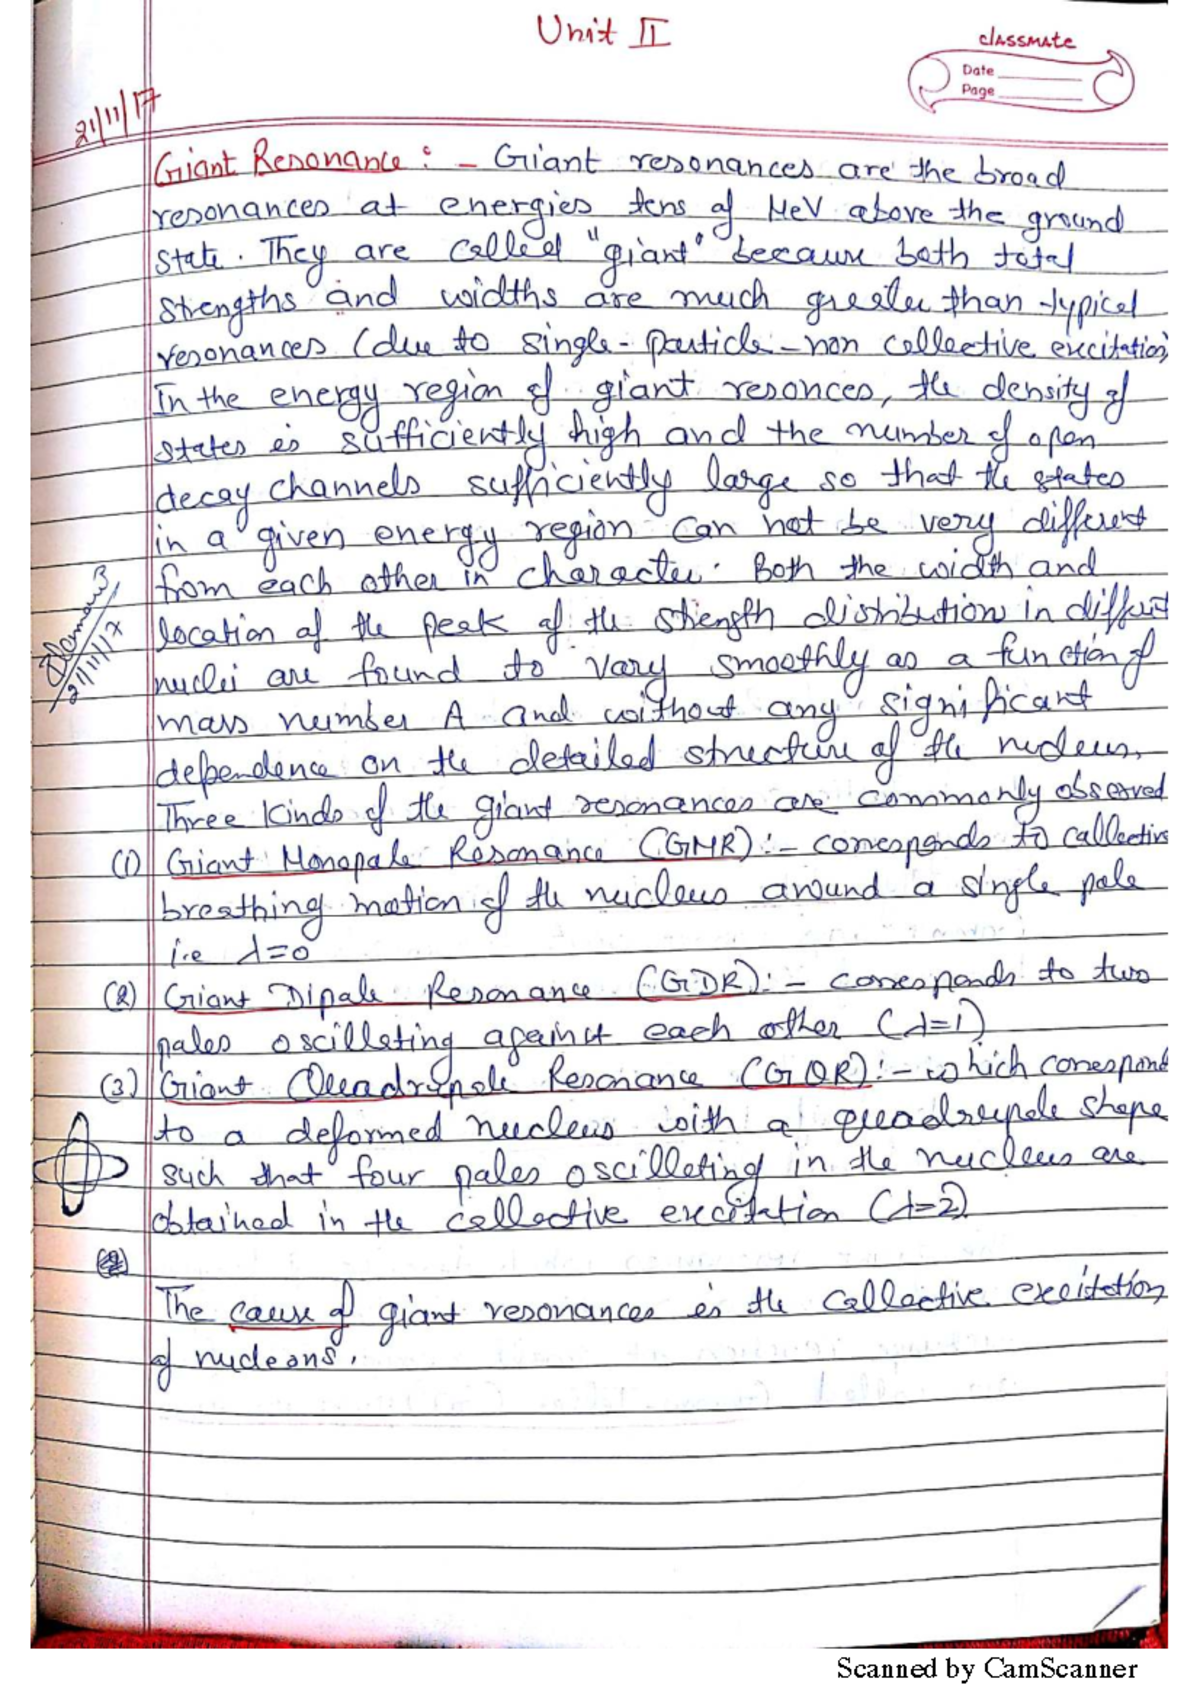 Unit II
classmate
Date
Page
21/11/17
Giant Resonance : - Giant resonances are the broad
resonances at energies tens of MeV above the ground
state. They are called "giant" because both total
strengths and widths are much greater than typical
resonances (due to single-particle-non collective excitation)
In the energy region of giant resonces, the density of
states is sufficiently high and the number of open
decay channels sufficiently large so that the states
in a given energy region can not be very different
from each other in character. Both the width and
location of the peak of the strength distribution in different
nuclei are found to vary smoothly as a function of
mass number A and without any significant
dependence on the detailed structure of the nucleus.
Three kinds of the giant resonances are commonly observed
(1) Giant Monopole Resonance (GMR):- corresponds to collective
breathing motion of the nucleus around a single pole
i.e λ=0
(2) Giant Dipole Resonance (GDR):- corresponds to two
poles oscillating against each other (λ=1)
(3) Giant Quadrupole Resonance (GQR):- which correspond
to a deformed nucleus with a quadrupole shape
such that four poles oscilleting in the nucleus are
obtained in the collective excitation (λ=2)
The cause of giant resonances is the collective excitation
of nucleons.
21/11/17
Scanned by CamScanner